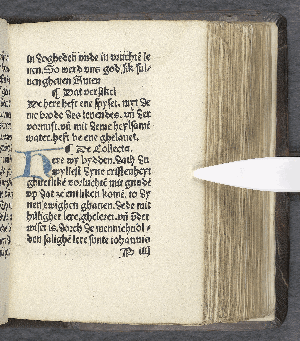 in dogheden vnde in vruchtē le
uen, So werd vns god, sik sul-
uen gheuen Amen
¶ Dat versikel
De here heft ene spyset, myt de
me brode des leuendes, vn̄ der
vornuft, vn̄ mit deme heylsamē
water, heft he ene ghelauet.
¶ De Collecta.
Here wy bydden, dath du
wyllest dyne cristenheyt
ghutlike vorluchtē mit gnadē
vp dat ze moken komē, to dy
nen ewighen ghauen, Dede mit
hilligher lere, gheleret, vn̄ vnder
wiset is, dorch de mennichuol-
den salighe lere sunte iohannis